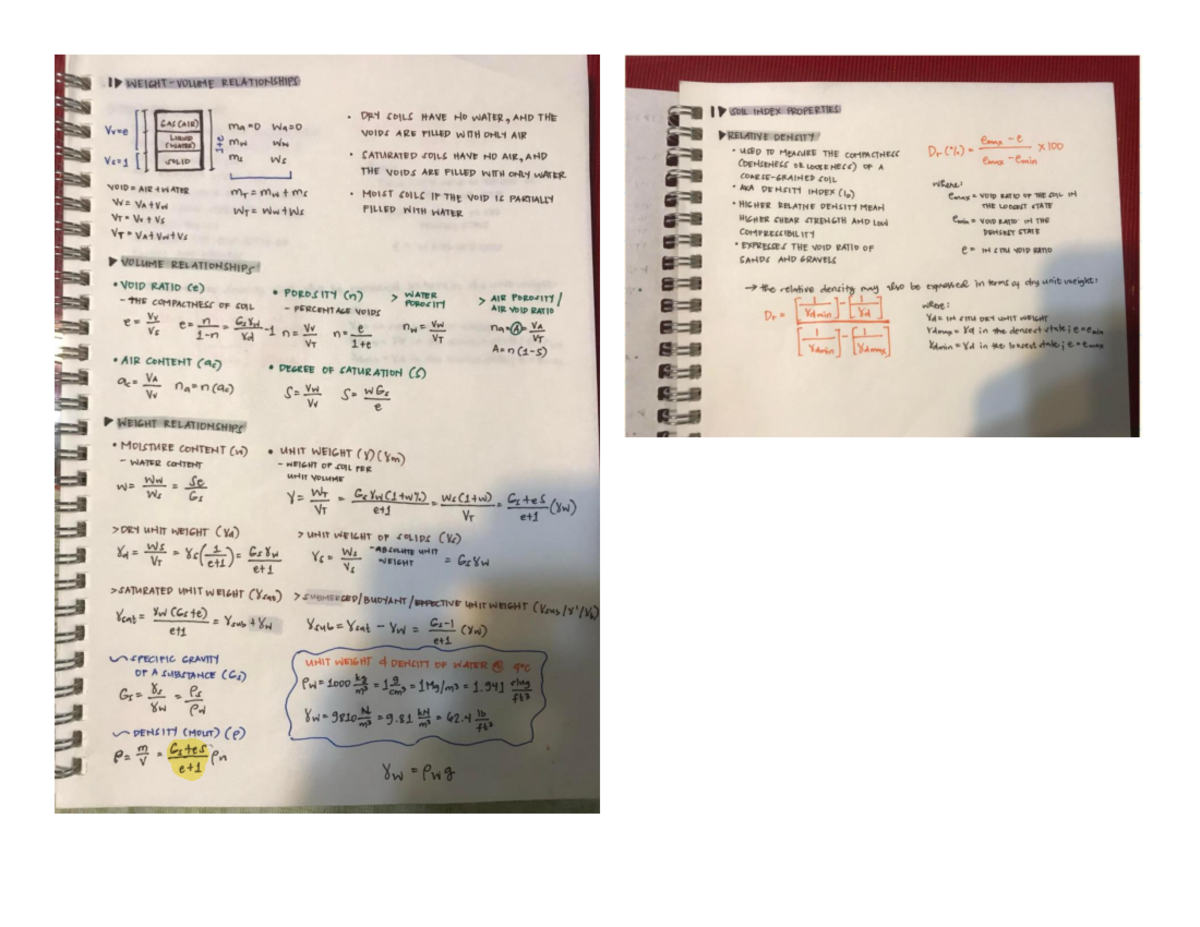 1▶ WEIGHT-VOLUME RELATIONSHIPS
Vv=e
Vs=1
GAS (AIR)
LIQUID (WATER)
SOLID
1+e
ma=0 Wa=0
mw Ww
ms Ws
mT = mw + ms
WT = Ww + Ws
• DRY SOILS HAVE NO WATER, AND THE
VOIDS ARE FILLED WITH ONLY AIR
• SATURATED SOILS HAVE NO AIR, AND
THE VOIDS ARE FILLED WITH ONLY WATER
• MOIST SOILS IF THE VOID IS PARTIALLY
FILLED WITH WATER
VOID = AIR + WATER
Vv = VA + Vw
VT = Vv + Vs
VT = VA + Vw + Vs
▶ VOLUME RELATIONSHIPS
• VOID RATIO (e)
- THE COMPACTNESS OF SOIL
e = Vv/Vs e = n/(1-n) = GsYw/Yd - 1
• POROSITY (n)
- PERCENTAGE VOIDS
n = Vv/VT n = e/(1+e)
> WATER POROSITY
nw = Vw/VT
> AIR POROSITY/
AIR VOID RATIO
na = A = VA/VT
A = n(1-S)
• AIR CONTENT (ac)
ac = VA/Vv na = n(ac)
• DEGREE OF SATURATION (S)
S = Vw/Vv S = wGs/e
▶ WEIGHT RELATIONSHIPS
• MOISTURE CONTENT (w)
- WATER CONTENT
w = Ww/Ws = Se/Gs
• UNIT WEIGHT (γ)(γm)
- WEIGHT OF SOIL PER
UNIT VOLUME
γ = WT/VT = Gsγw(1+w%)/(e+1) = Ws(1+w)/VT = (Gs+eS)/(e+1) (γw)
> DRY UNIT WEIGHT (γd)
γd = Ws/VT = γs(1/(e+1)) = Gsγw/(e+1)
> UNIT WEIGHT OF SOLIDS (γs)
γs = Ws/Vs - ABSOLUTE UNIT WEIGHT = Gsγw
> SATURATED UNIT WEIGHT (γsat)
γsat = γw(Gs+e)/(e+1) = γsub + γw
> SUBMERGED/BUOYANT/EFFECTIVE UNIT WEIGHT (γsub/γ'/γb)
γsub = γsat - γw = (Gs-1)/(e+1) (γw)
SPECIFIC GRAVITY
OF A SUBSTANCE (Gs)
Gs = γs/γw = ρs/ρw
DENSITY (MOIST) (ρ)
ρ = m/V = (Gs+eS)/(e+1) ρn
UNIT WEIGHT & DENSITY OF WATER @ 4°C
ρw = 1000 kg/m³ = 1 g/cm³ = 1 Mg/m³ = 1.941 slug/ft³
γw = 9810 N/m³ = 9.81 kN/m³ = 62.4 lb/ft³
γw = ρwg
1▶ SOIL INDEX PROPERTIES
▶ RELATIVE DENSITY
• USED TO MEASURE THE COMPACTNESS
(DENSENESS OR LOOSENESS) OF A
COARSE-GRAINED SOIL
• AKA DENSITY INDEX (ID)
• HIGHER RELATIVE DENSITY MEAN
HIGHER SHEAR STRENGTH AND LOW
COMPRESSIBILITY
• EXPRESSES THE VOID RATIO OF
SANDS AND GRAVELS
Dr (%) = (emax - e)/(emax - emin) x 100
where:
emax = VOID RATIO OF THE SOIL IN
THE LOOSEST STATE
emin = VOID RATIO IN THE
DENSEST STATE
e = IN SITU VOID RATIO
→ the relative density may also be expressed in terms of dry unit weight:
Dr = ([1/γdmin] - [1/γd])/([1/γdmin] - [1/γdmax])
where:
γd = IN SITU DRY UNIT WEIGHT
γdmax = γd in the densest state; e = emin
γdmin = γd in the loosest state; e = emax